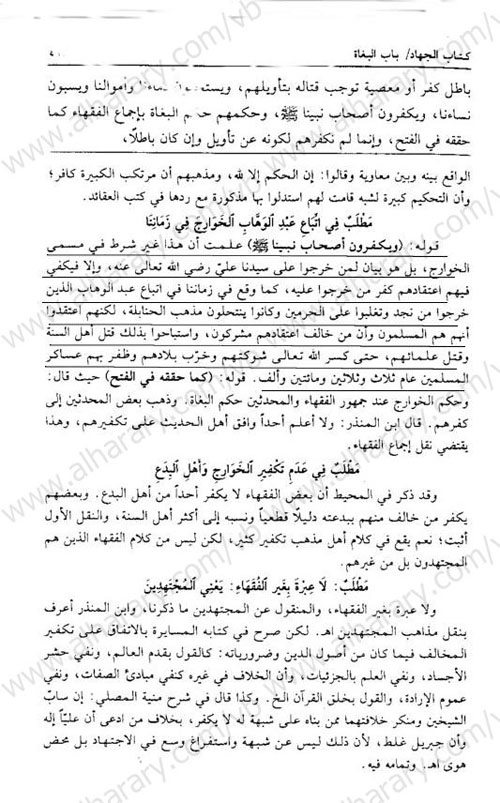 كتاب الجهاد/ باب البغاة
باطل كفر أو معصية توجب قتاله بتأويلهم، ويستحلون دماءنا وأموالنا ويسبون
نساءنا، ويكفرون أصحاب نبينا ﷺ، وحكمهم حكم البغاة بإجماع الفقهاء كما
حققه في الفتح، وإنما لم نكفرهم لكونه عن تأويل وإن كان باطلًا،
الواقع بينه وبين معاوية وقالوا: إن الحكم إلا لله، ومذهبهم أن مرتكب الكبيرة كافر؛
وأن التحكيم كبيرة لشبه قامت لهم استدلوا بها مذكورة مع ردها في كتب العقائد.
مَطْلَبٌ فِي اتْبَاعِ عَبْدِ الْوَهَّابِ الْخَوَارِجِ فِي زَمَانِنَا
قوله: (ويكفرون أصحاب نبينا ﷺ) علمت أن هذا غير شرط في مسمى
الخوارج، بل هو بيان لمن خرجوا على سيدنا عليّ رضي الله تعالى عنه، وإلا فيكفي
فيهم اعتقادهم كفر من خرجوا عليه، كما وقع في زماننا في اتباع عبد الوهاب الذين
خرجوا من نجد وتغلبوا على الحرمين وكانوا ينتحلون مذهب الحنابلة، لكنهم اعتقدوا
أنهم هم المسلمون وأن من خالف اعتقادهم مشركون، واستباحوا بذلك قتل أهل السنة
وقتل علمائهم، حتى كسر الله تعالى شوكتهم وخرّب بلادهم وظفر بهم عساكر
المسلمين عام ثلاث وثلاثين ومائتين وألف. قوله: (كما حققه في الفتح) حيث قال:
وحكم الخوارج عند جمهور الفقهاء والمحدثين حكم البغاة. وذهب بعض المحدثين إلى
كفرهم. قال ابن المنذر: ولا أعلم أحداً وافق أهل الحديث على تكفيرهم، وهذا
يقتضي نقل إجماع الفقهاء.
مَطْلَبٌ فِي عَدَمِ تَكْفِيرِ الْخَوَارِجِ وَأَهْلِ الْبِدَعِ
وقد ذكر في المحيط أن بعض الفقهاء لا يكفر أحداً من أهل البدع. وبعضهم
يكفر من خالف منهم ببدعته دليلًا قطعياً ونسبه إلى أكثر أهل السنة، والنقل الأول
أثبت؛ نعم يقع في كلام أهل مذهب تكفير كثير، لكن ليس من كلام الفقهاء الذين هم
المجتهدون بل من غيرهم.
مَطْلَبٌ: لَا عِبْرَةَ بِغَيْرِ الْفُقَهَاءِ: يَعْنِي الْمُجْتَهِدِينَ
ولا عبرة بغير الفقهاء، والمنقول عن المجتهدين ما ذكرنا، وابن المنذر أعرف
بنقل مذاهب المجتهدين اهـ. لكن صرح في كتابه المسايرة بالاتفاق على تكفير
المخالف فيما كان من أصول الدين وضرورياته: كالقول بقدم العالم، ونفي حشر
الأجساد، ونفي العلم بالجزئيات، وأن الخلاف في غيره كنفي مبادئ الصفات، ونفي
عموم الإرادة، والقول بخلق القرآن الخ. وكذا قال في شرح منية المصلي: إن سابّ
الشيخين ومنكر خلافتهما ممن بناه على شبهة له لا يكفر، بخلاف من ادعى أن عليّاً إله
وأن جبريل غلط، لأن ذلك ليس عن شبهة واستفراغ وسع في الاجتهاد بل محض
هوى اهـ. وتمامه فيه.